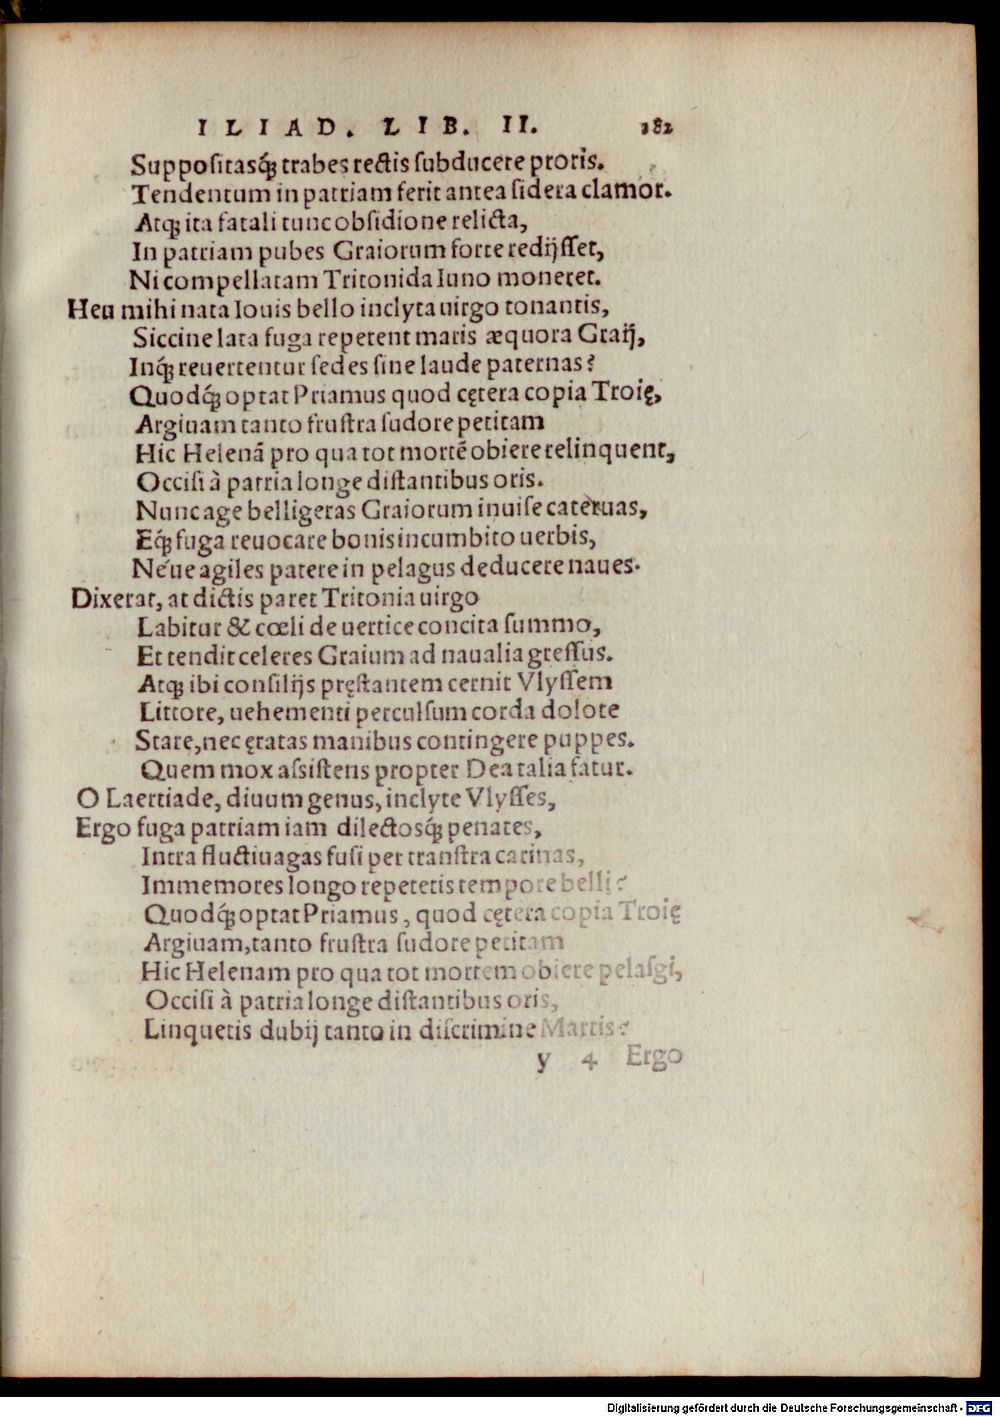 ILIAD. LIB. II. 182
Suppositasq́; trabes rectis subducere proris.
Tendentum in patriam ferit antea sidera clamor.
Atq; ita fatali tunc obsidione relicta,
In patriam pubes Graiorum forte redijsset,
Ni compellatam Tritonida Iuno moneret.
Heu mihi nata Iouis bello inclyta uirgo tonantis,
Siccine lata fuga repetent maris æquora Graij,
Inq́; reuertentur sedes sine laude paternas?
Quodq́; optat Priamus quod cętera copia Troię,
Argiuam tanto frustra sudore petitam
Hic Helenā pro qua tot mortē obiere relinquent,
Occisi à patria longe distantibus oris.
Nunc age belligeras Graiorum inuise cateruas,
Eq́; fuga reuocare bonis incumbito uerbis,
Néue agiles patere in pelagus deducere naues.
Dixerat, at dictis paret Tritonia uirgo
Labitur & cœli de uertice concita summo,
Et tendit celeres Graium ad naualia gressus.
Atq; ibi consilijs pręstantem cernit Vlyssem
Littore, uehementi perculsum corda dolore
Stare, nec ęratas manibus contingere puppes.
Quem mox assistens propter Dea talia fatur.
O Laertiade, diuum genus, inclyte Vlysses,
Ergo fuga patriam iam dilectosq́; penates,
Intra fluctiuagas fusi per transtra carinas,
Immemores longo repetetis tempore belli?
Quodq́; optat Priamus, quod cętera copia Troię
Argiuam, tanto frustra sudore petitam
Hic Helenam pro qua tot mortem obiere pelasgi,
Occisi à patria longe distantibus oris,
Linquetis dubij tanto in discrimine Martis?
y 4 Ergo
Digitalisierung gefördert durch die Deutsche Forschungsgemeinschaft - DFG